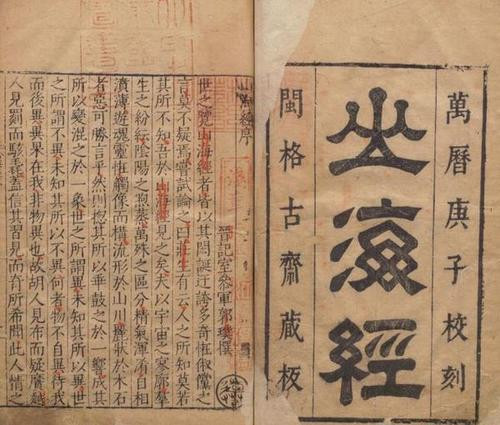 萬曆庚子校刻
山海經
閩格古齋藏板
山海經序
晉記室參軍郭璞撰
世之覽山海經者皆以其閎誕迂誇多奇怪俶儻之
言莫不疑焉嘗試論之曰莊生有云人之所知莫若
其所不知吾於山海經見之矣夫以宇宙之寥廓羣
生之紛紜陰陽之煦蒸萬殊之區分精氣渾淆自相
濆薄遊魂靈怪觸像而構流形於山川麗狀於木石
者惡可勝言乎然則揔其所以乖鼓之於一響成其
所以變混之於一象世之所謂異未知其所以異世
之所謂不異未知其所以不異何者物不自異待我
而後異異果在我非物異也故胡人見布而疑黂越
人見罽而駭毳盖信其習見而奇所希聞此人情之